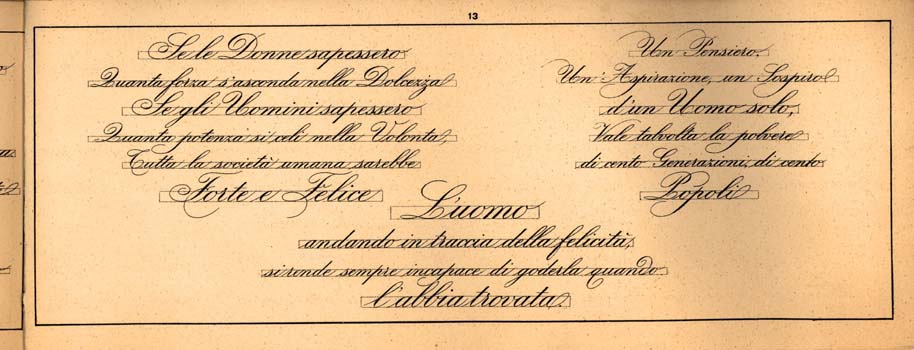 13
Se le Donne sapessero
Quanta forza s'asconda nella Dolcezza
Se gli Uomini sapessero
Quanta potenza si celi nella Volontà,
Tutta la società umana sarebbe
Forte e Felice
Un Pensiero,
Un Aspirazione, un Sospiro
d'un Uomo solo,
Vale talvolta la polvere
di cento Generazioni, di cento
Popoli
L'uomo
andando in traccia della felicità,
si rende sempre incapace di goderla quando
l'abbia trovata.